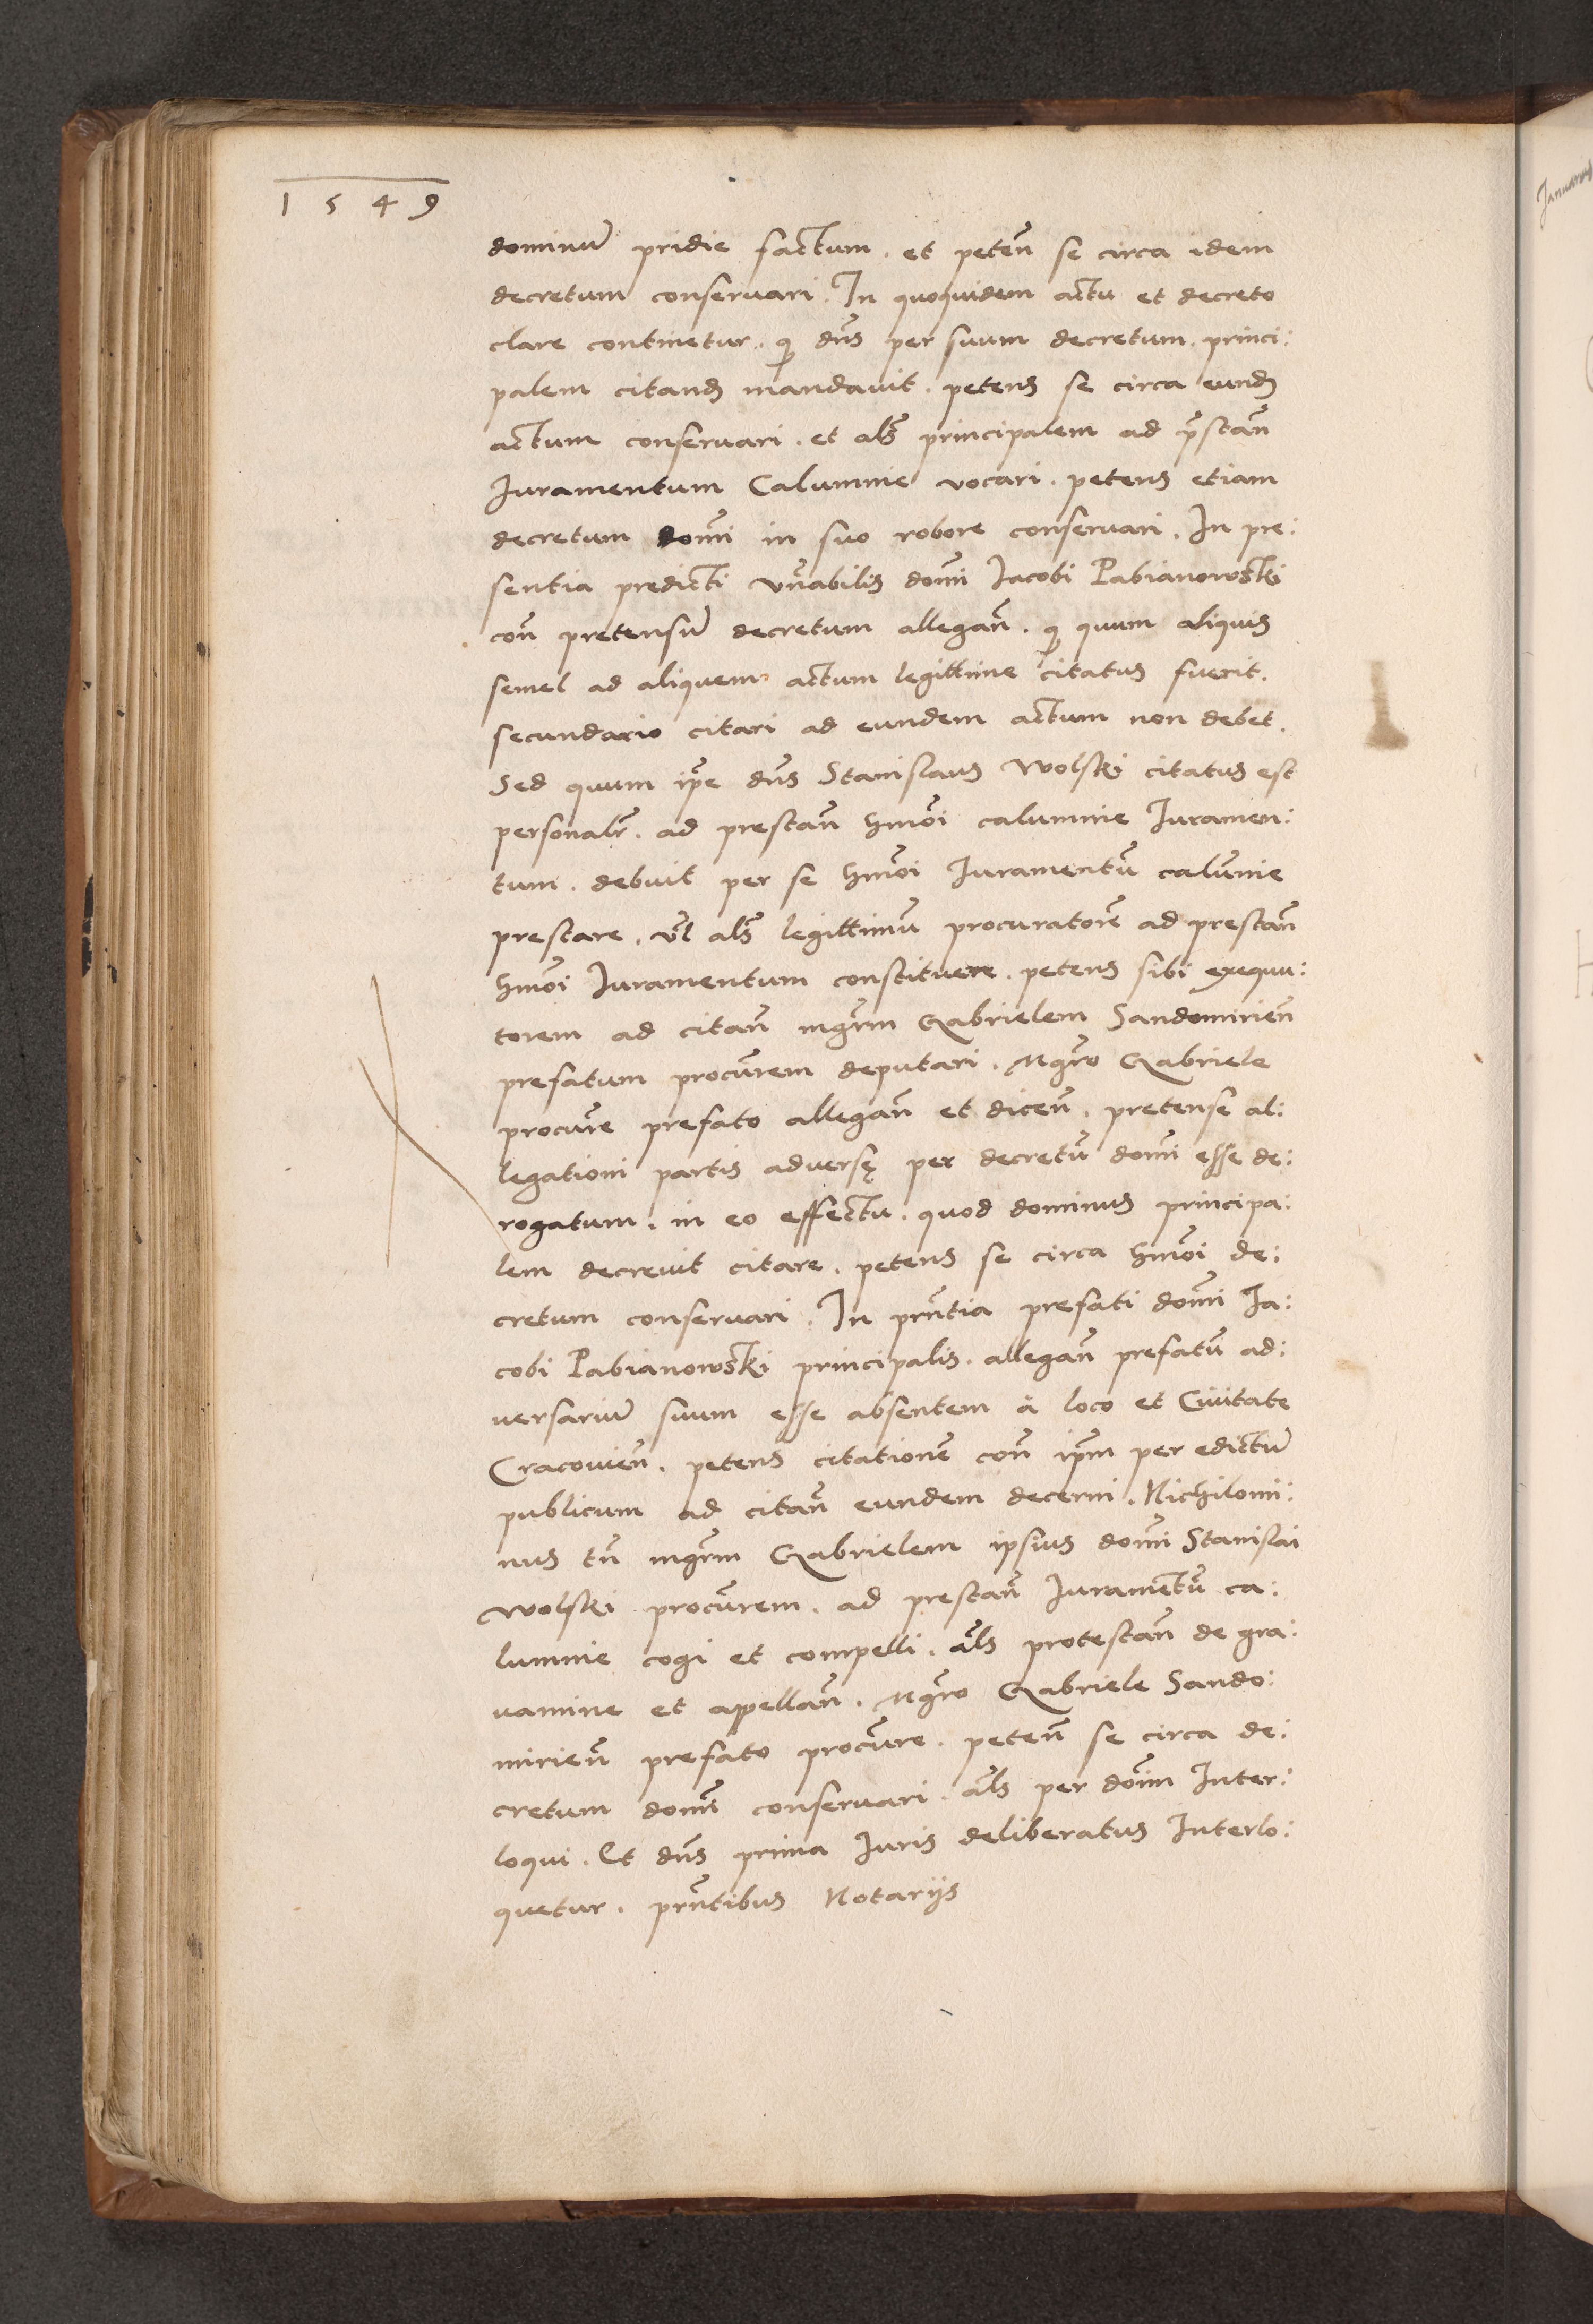 1549
dominū pridie factum. et peten̄ se circa idem
decretum conseruari. In quoquidem actu et decreto
clare continetur. ꝙ dn̄s per suum decretum princi:
palem citand̨ mandauit. petens se circa eund̨
actum conseruari. et als̄ principalem ad p̄stan̄
Iuramentum Calumnie vocari. petens etiam
decretum domī in suo robore conseruari. In pre:
sentia predicti vn̄abilis domī Iacobi Pabianowski
con̄ pretensū decretum allegan̄. ꝙ quum aliquis
semel ad aliquem actum legittime citatus fuerit.
secundario citari ad eundem actum non debet.
Sed quum ip̄e dn̄s Stanislaus Wolski citatus est
personalr̄. ad prestan̄ hmōi calumnie Iuramen:
tum. debuit per se hmōi Iuramentū calūnie
prestare. vl̄ als̄ legittimū procuratorē ad prestan̄
hmōi Iuramentum constituere. petens sibi exequu:
torem ad citan̄ mgr̄m Gabrielem Sandomirien̄
prefatum procūrem deputari. Mgr̄o Gabriele
procūre prefato allegan̄ et dicen̄. pretense al:
legationi partis aduersę per decretū domī esse de:
rogatum. in eo effectu. quod dominus principa:
lem decreuit citare. petens se circa hmōi de:
cretum conseruari. In prn̄tia prefati domī Ia:
cobi Pabianowski principalis. allegan̄ prefatū ad:
uersariū suum esse absentem à loco et Ciuitate
Cracouien̄. petens citationē con̄ ip̄m per edictū
publicum ad citan̄ eundem decerni. Nichilomi:
nus tn̄ mgr̄m Gabrielem ipsius domī Stanislai
Wolski procūrem. ad prestan̄ Iuramētū ca:
lumnie cogi et compelli. āls protestan̄ de gra:
uamine et apellan̄. Mgr̄o Gabriele Sando:
mirien̄ prefato procūre. peten̄ se circa de:
cretum domī conseruari. āls per dōim Inter:
loqui. Et dn̄s prima Iuris deliberatus Interlo:
quetur. prn̄tibus Notarijs